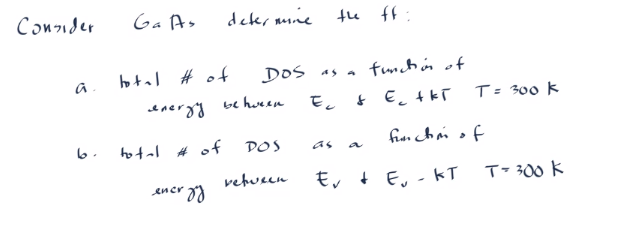 Consider GaAs determine the ff:
a. total # of DOS as a function of
energy between Ec & Ec + kT T = 300 K
b. total # of DOS as a function of
energy between Ev & Ev - kT T = 300 K